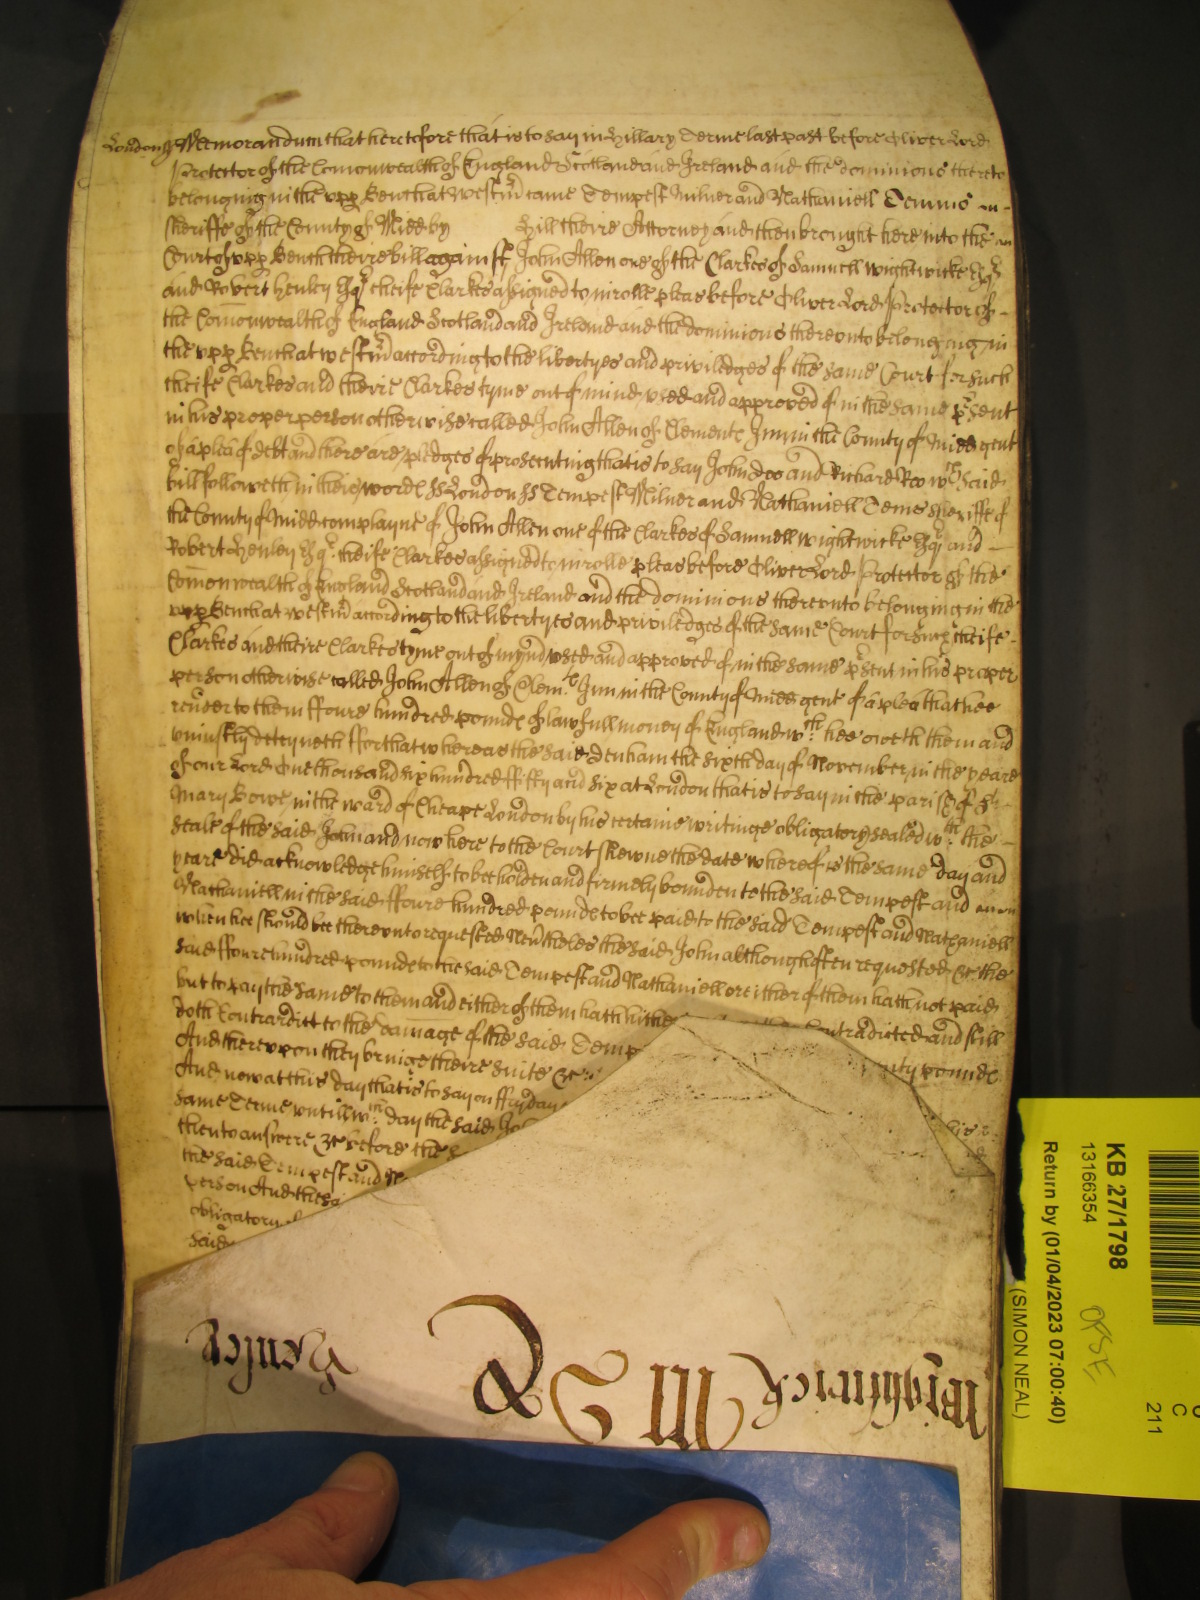 London ss Memorandum that heretofore that is to say in Hillary Terme last past before Oliver Lord
Protector of the Comonwealth of England Scotland and Ireland and the dominions thereto
belonging in the upp Bench at Westmr came Tempest Milner and Nathaniell Temms
Sheriffe of the County of Midd by Hill theire Attorney and then brought here into the
Court of upp Bench theire bill against John Allen one of the Clarkes of Samuell Wightwicke Esqr
and Robert Henley Esqr cheife Clarkes assigned to inrolle pleas before Oliver Lord Protector of
the Comonwealth of England Scotland and Ireland and the dominions thereonto belonging in
the upp Bench at Westmr according to the libertyes and priviledges of the same Court for such
cheife Clarkes and theire Clarkes tyme out of mind used and approved of in the same psent
in his proper person otherwise called John Allen of Clements Inn in the County of Midd gent
of a plea of debt and there are pledges of prosecuting that is to say John Doo and Richard Roo wch said
Bill followeth in theis words ss London ss Tempest Milner and Nathaniell Tems Sheriffe of
the County of Midd complayne of John Allen one of the Clarkes of Samuell Wightwicke Esqr and
Robert Henley Esqr cheife Clarkes assigned to inrolle pleas before Oliver Lord Protector of the
Comonwealth of England Scotland and Ireland and the dominions thereunto belonging in the
upp Bench at Westmr according to the libertyes and priviledges of the same Court for such cheife
Clarkes and theire Clarkes tyme out of mynd used and approved of in the same psent in his proper
person otherwise called John Allen of Clemts Inn in the County of Midd gent of a plea that hee
render to them ffoure hundred pounds of lawfull money of England wch hee oweth them and
uniustly deteyneth ffor that whereas the said John the sixth day of November in the yeare
of our Lord One thousand six hundred fiffty and six at London that is to say in the parish of St
Mary Bowe in the ward of Cheape London by his certaine writinge obligatory sealed wth the
seale of the said John and now here to the Court shewne the date whereof is the same day and
yeare did acknowledge himself to be holden and firmely bounden to the said Tempest and
Nathaniell in the said ffoure hundred pounds to bee paid to the said Tempest and Nathaniell
when hee should bee thereunto requested Nevtheles the said John although often requested &c the
said ffoure hundred pounds to the said Tempest and Nathaniell or either of them hath not paid
but to pay the same to them and either of them hath hithe contradicted and still
doth Contradict to the damage of the said Temp nty pounds
And thereupon they bringe theire suite &c
And now at this day that is to say on ffryday
same Terme untill wch day the said Joh
then to answere &c before the
the said Tempest and N
person And the sa
obligatory
said
Henley
Wightwick
KB 27/1798
13166354
Return by (01/04/2023 07:00:40)
(SIMON NEAL)
C
211